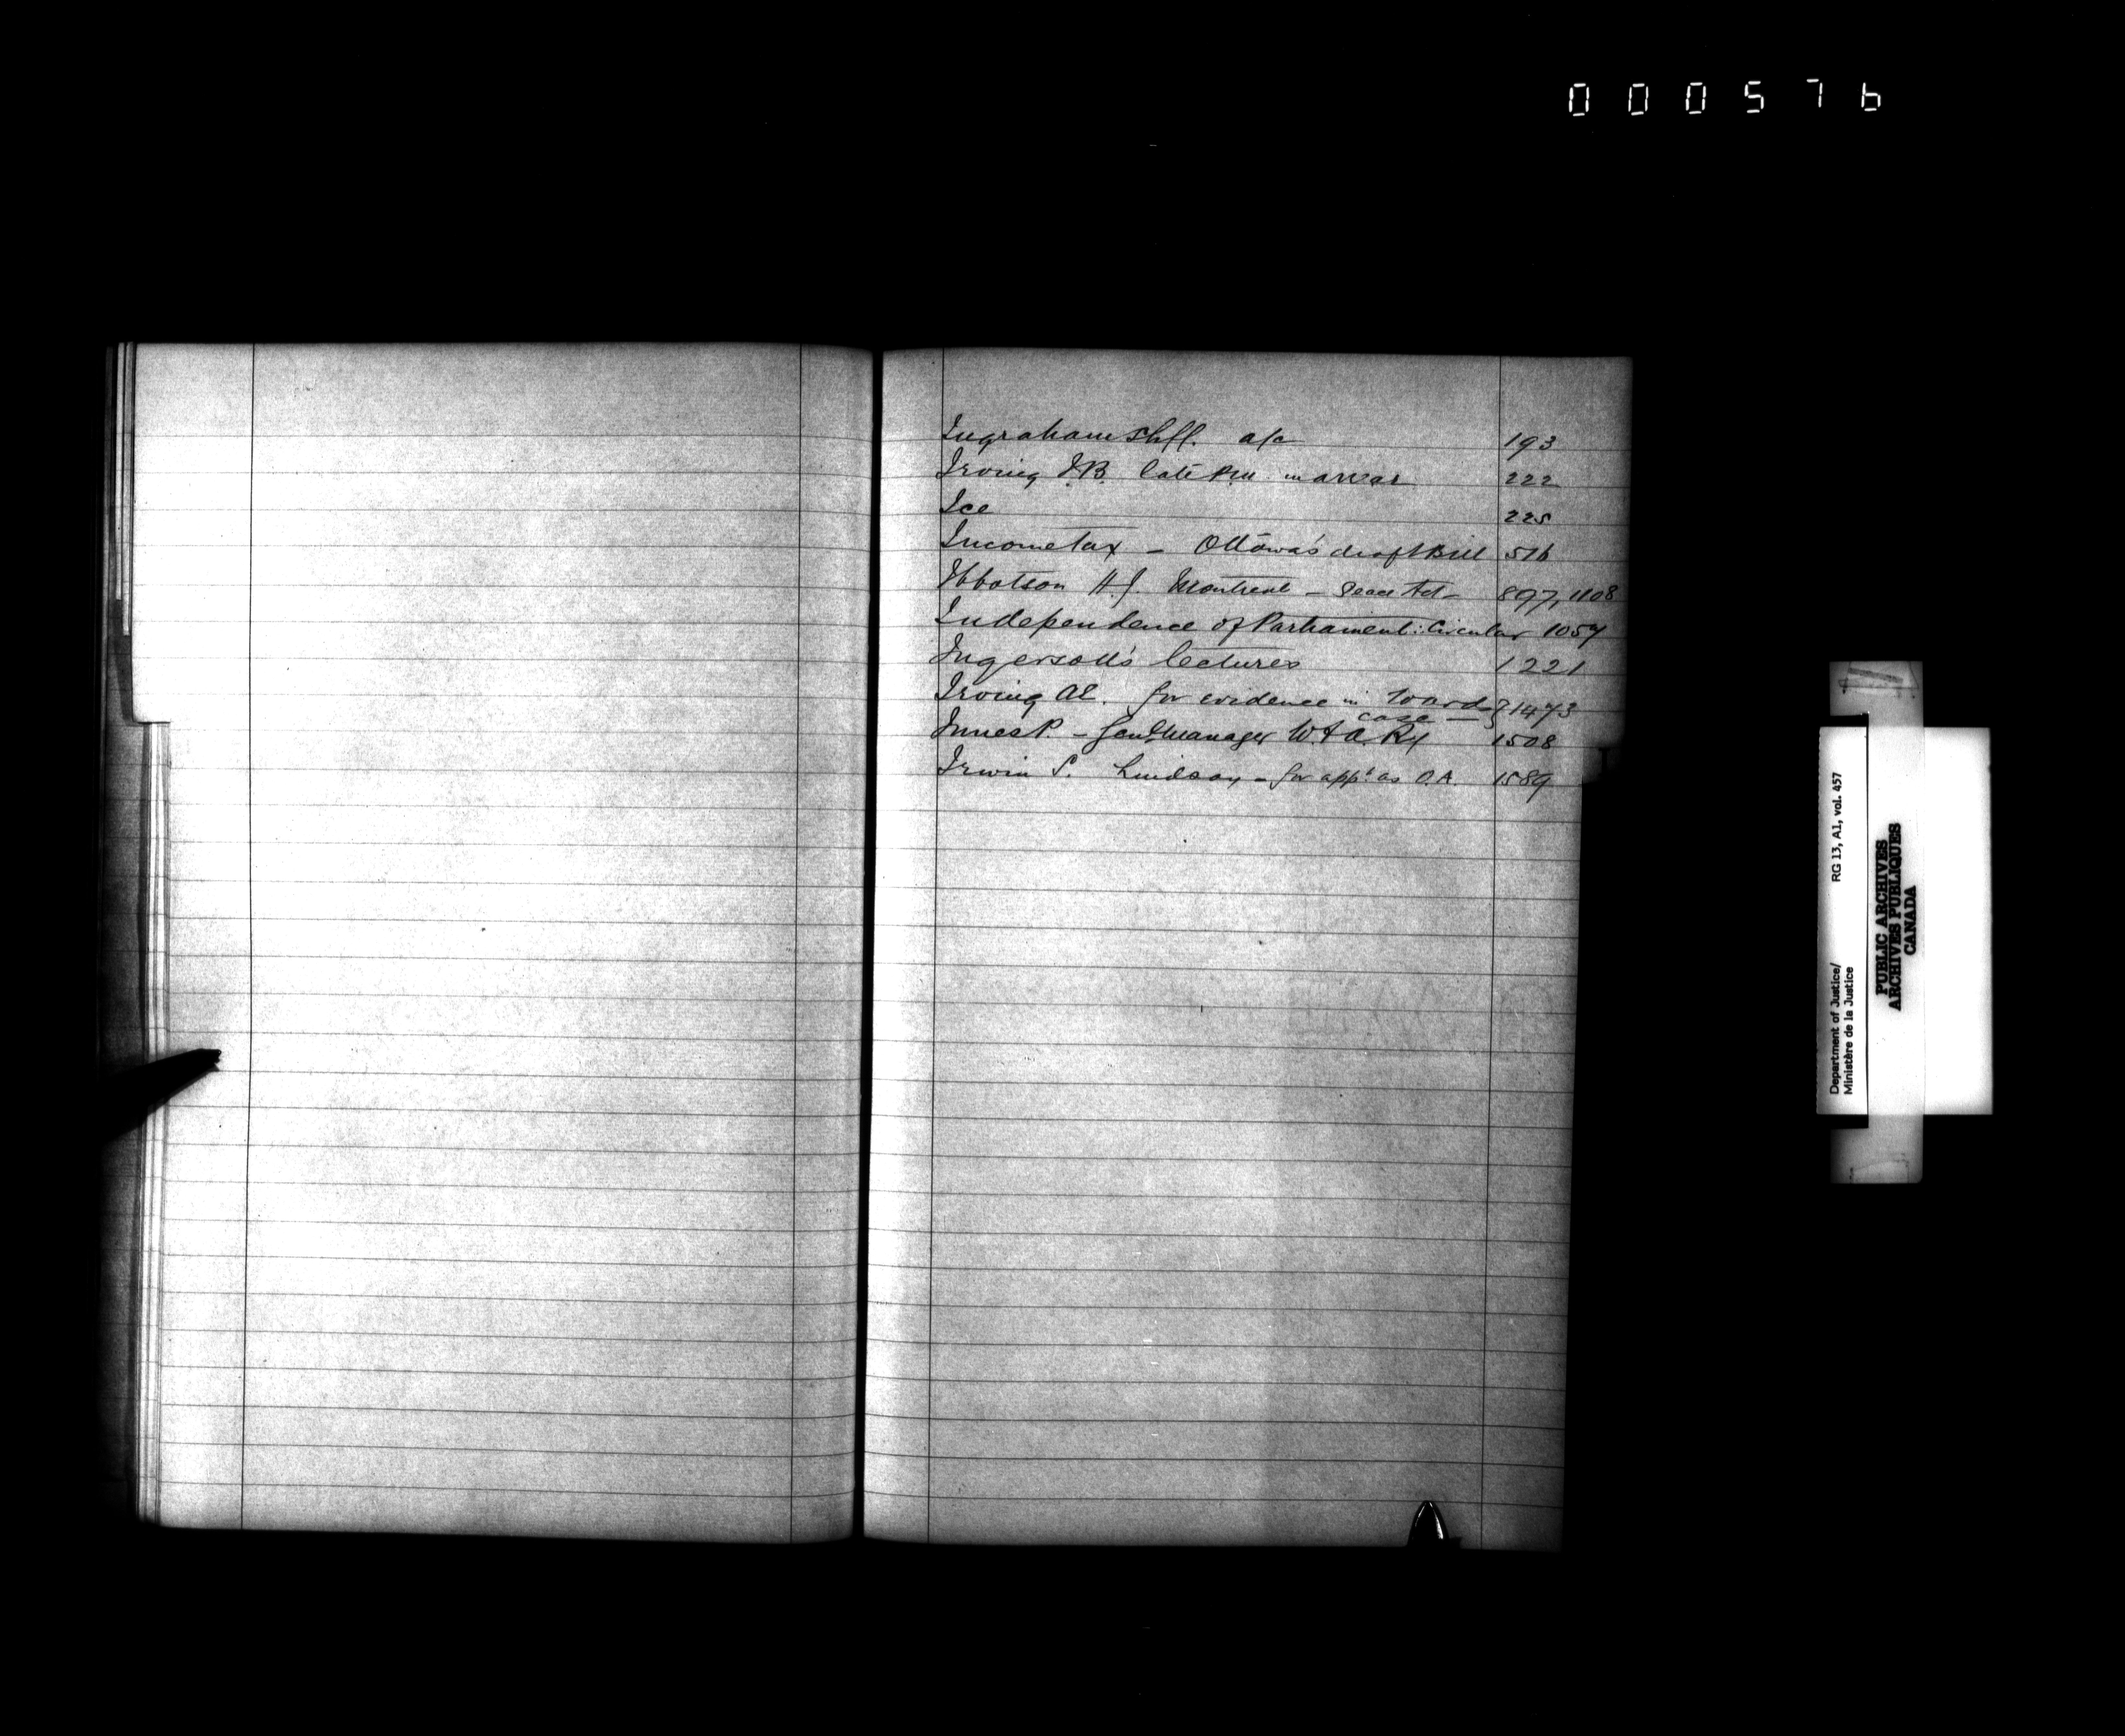 000576
Ingraham Shff. a/c 193
Irving J.B. late P.M. in arrear 222
Ice 225
Income tax - Ottawa's draft Bill 516
Ibbotson H.J. Montreal - 897, 1108
Independence of Parliament: Circular 1057
Ingersoll's lectures 1221
Irving Æ. for evidence in Wards 1473
case —
Innes P. - Genl Manager W. & A. Ry 1508
Irwin S. Lindsay - for appt. as O.A. 1589
I
Department of Justice/ RG 13, A1, vol. 457
Ministère de la Justice
PUBLIC ARCHIVES
ARCHIVES PUBLIQUES
CANADA